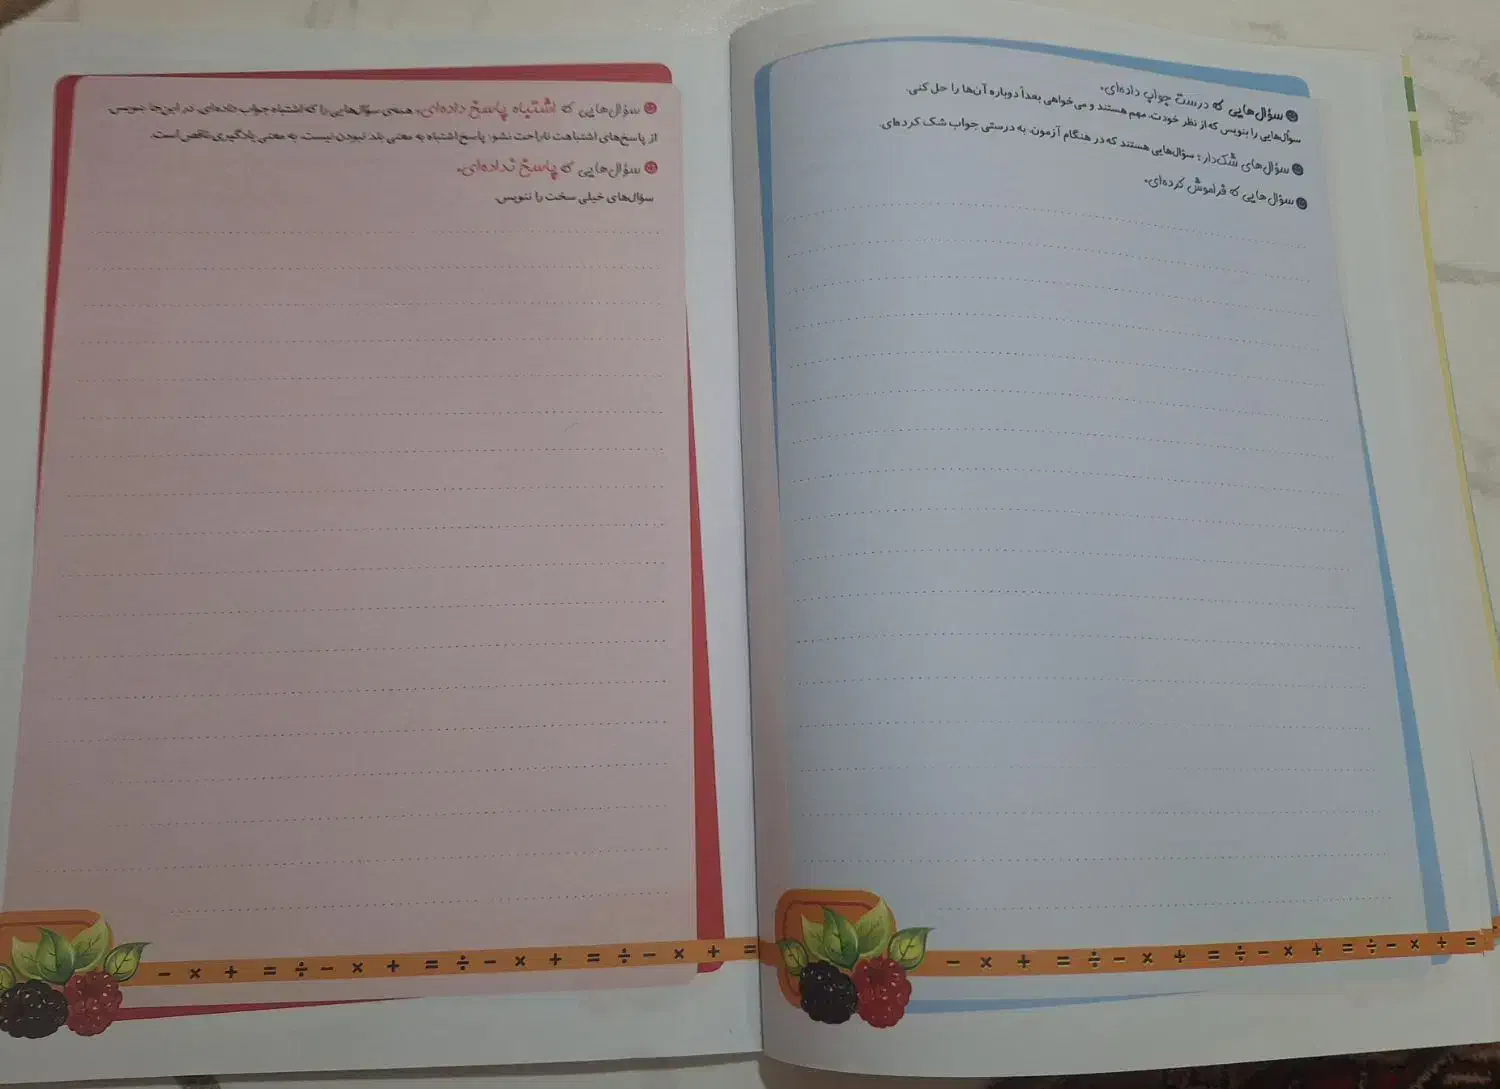 سؤال‌هایی که درست جواب داده‌ای.
سؤال‌هایی را بنویس که از نظر خودت، مهم هستند و می‌خواهی بعداً دوباره آن‌ها را حل کنی.
سؤال‌های شک‌دار: سؤال‌هایی هستند که در هنگام آزمون، به درستی جواب شک کرده‌ای.
سؤال‌هایی که فراموش کرده‌ای.
− × + = ÷ − × + = ÷ − × + = ÷ − × + =
سؤال‌هایی که اشتباه پاسخ داده‌ای. همه‌ی سؤال‌هایی را که اشتباه جواب داده‌ای، در این‌جا بنویس.
از پاسخ‌های اشتباهت ناراحت نشو؛ پاسخ اشتباه به معنی بلد نبودن نیست، به معنی یادگیری ناقص است.
سؤال‌هایی که پاسخ نداده‌ای.
سؤال‌های خیلی سخت را ننویس.
− × + = ÷ − × + = ÷ − × + = ÷ − × + =